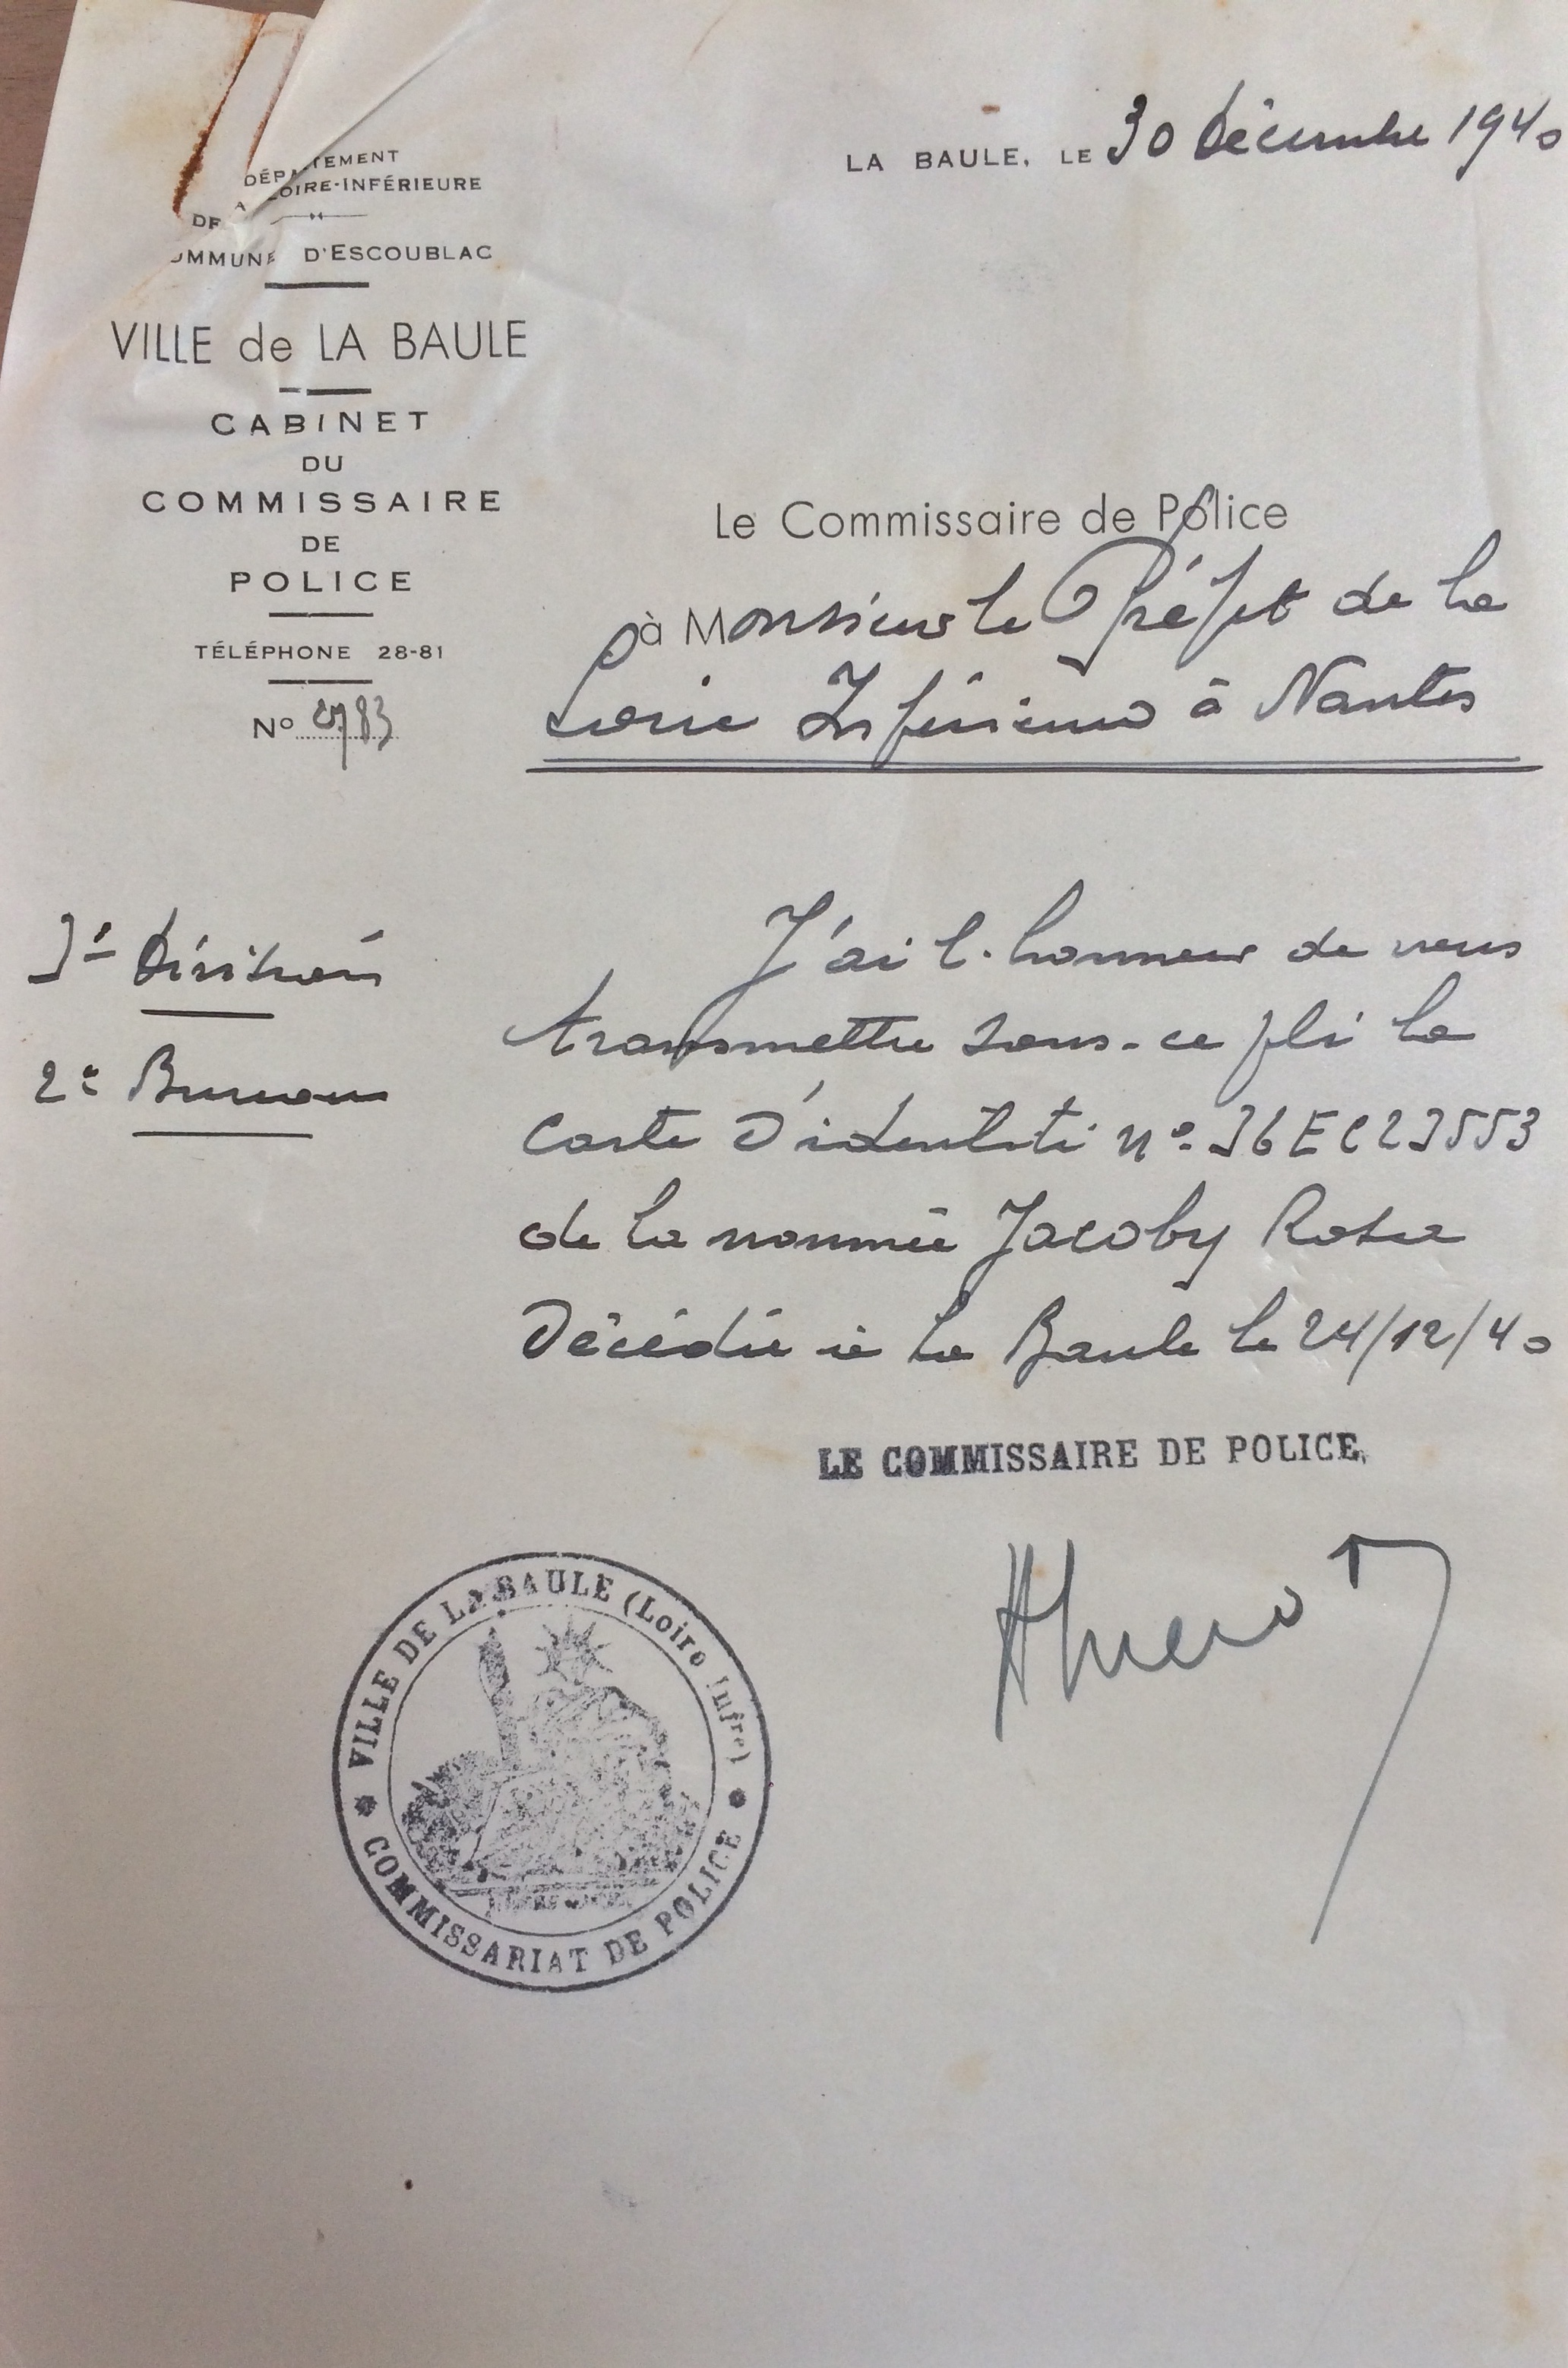 DÉPARTEMENT
DE LA LOIRE-INFÉRIEURE
COMMUNE D'ESCOUBLAC
VILLE de LA BAULE
CABINET
DU
COMMISSAIRE
DE
POLICE
TÉLÉPHONE 28-81
Nº
LA BAULE, LE 30 Décembre 1940
Le Commissaire de Police
à Monsieur le Préfet de la
Loire Inférieure à Nantes
Division
2e Bureau
J'ai l'honneur de vous
transmettre sous-ce pli la
Carte D'identité nº 36EC23553
de la nommée Jacoby Rosa
Décédée à La Baule le 24/12/40
LE COMMISSAIRE DE POLICE,
VILLE DE LA BAULE (Loire Infre)
COMMISSARIAT DE POLICE